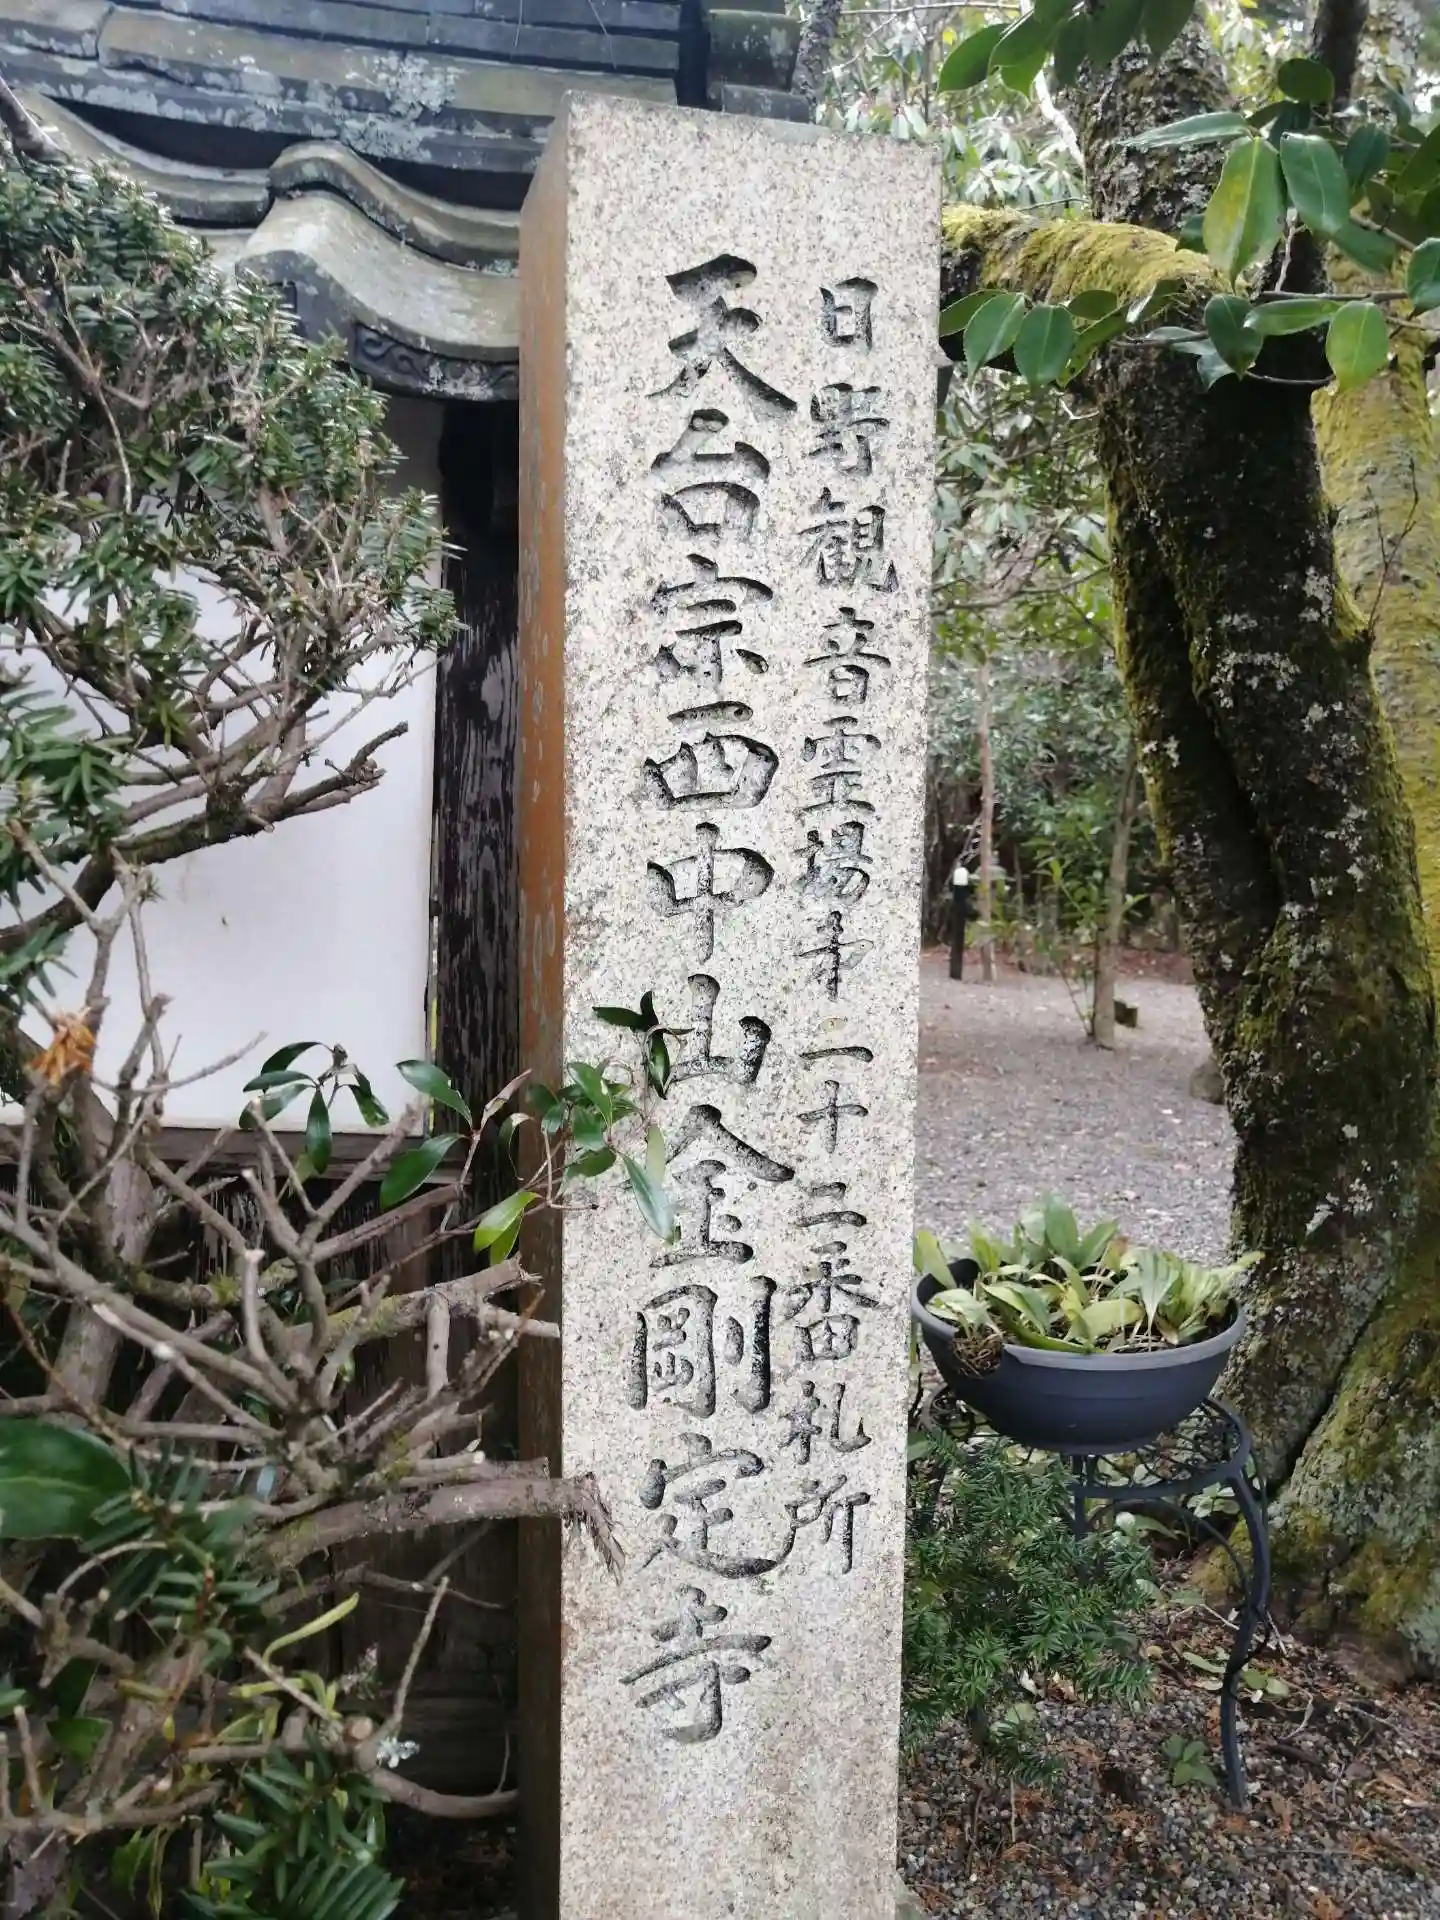 日野観音霊場第二十二番札所
天台宗西中山金剛定寺